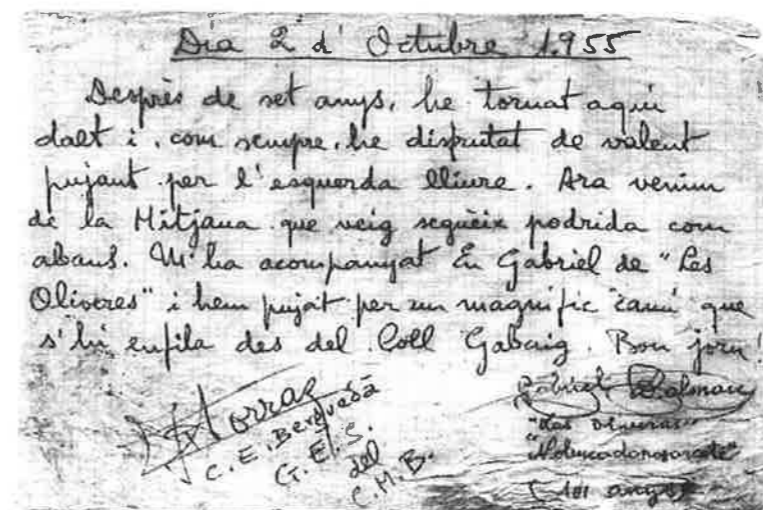 Dia 2 d' Octubre 1.955
Desprès de set anys, he tornat aquí
dalt i, com sempre, he disfrutat de valent
pujant per l'esquerda lliure. Ara venim
de la Mitjana que veig segueix podrida com
abans. M'ha acompanyat En Gabriel de "Les
Oliveres" i hem pujat per un magnific camí que
s'hi enfila des del Coll Gabaig. Bon jorn!
Torras
C. E. Berguedà
G. E. S.
del
C. M. B.
Gabriel
"Las Oliveras"
(101 anys)